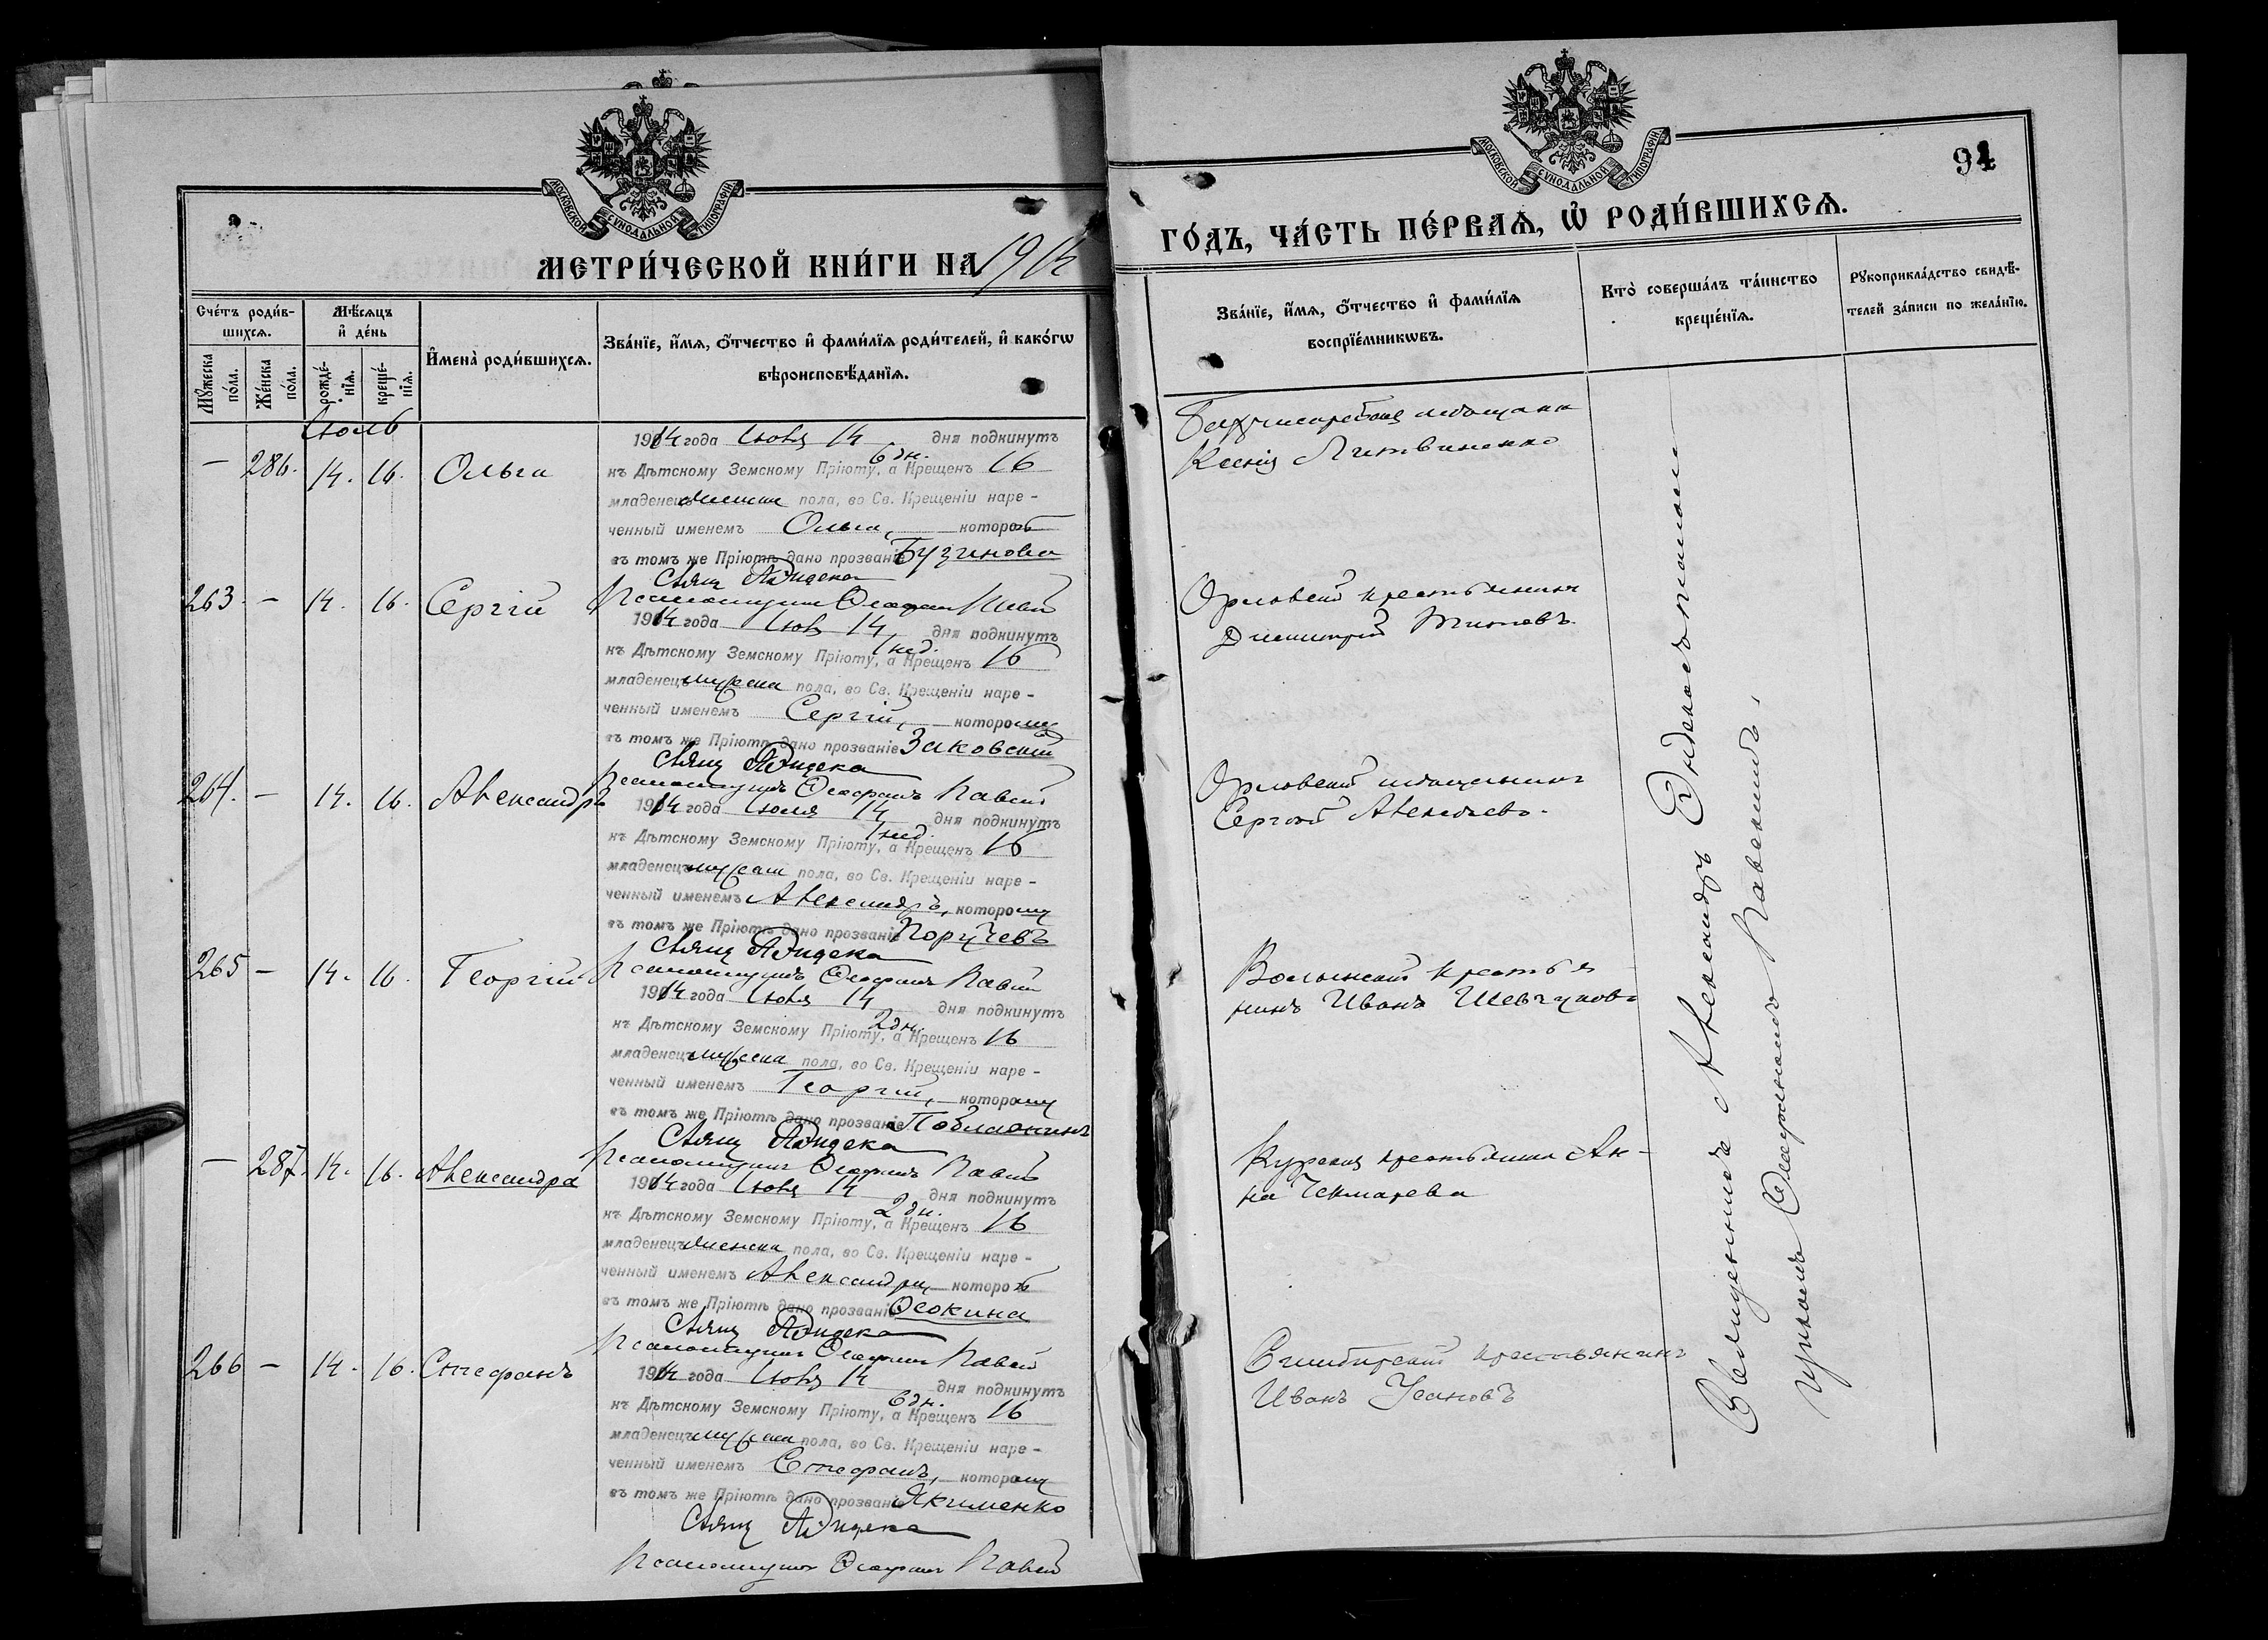 МОСКОВСКОЙ СУНОДАЛЬНОЙ ТИПОГРАФІИ
МЕТРИ́ЧЕСКОЙ КНИ́ГИ НА 1914
Сче́тъ роди́в-
шихся.
Мѣ́сяцъ
и҆ де́нь
Мꙋ́жеска
по́ла.
Же́нска
по́ла.
рожде́-
нїѧ.
креще́-
нїѧ.
И҆мена̀ роди́вшихсѧ.
Зва́нїе, и҆́мѧ, ѻ҆́тчество и҆ фами́лїѧ роди́телей, и҆ како́гѡ
вѣроисповѣ́данїѧ.
Июль
— 286. 14. 16. Ольга
1914 года Июля 14 дня подкинутъ
6 дн.
къ Дѣтскому Земскому Пріюту, а Крещенъ 16
младенецъ женска пола, во Св. Крещеніи наре-
ченный именемъ Ольга, которой
въ томъ же Пріютѣ дано прозваніе Бузинова
Свящ.
263. — 14. 16. Сергій
Псаломщикъ
1914 года Июля 14 дня подкинутъ
1 нед.
къ Дѣтскому Земскому Пріюту, а Крещенъ 16
младенецъ мужеска пола, во Св. Крещеніи наре-
ченный именемъ Сергій, которому
въ томъ же Пріютѣ дано прозваніе Заковскій
Свящ.
264. — 14. 16. Александръ
Псаломщикъ
1914 года Июля 14 дня подкинутъ
1 нед.
къ Дѣтскому Земскому Пріюту, а Крещенъ 16
младенецъ мужеска пола, во Св. Крещеніи наре-
ченный именемъ Александръ, которому
въ томъ же Пріютѣ дано прозваніе Поручевъ
Свящ.
265 — 14. 16. Георгій
Псаломщикъ
1914 года Июля 14 дня подкинутъ
2 дн.
къ Дѣтскому Земскому Пріюту, а Крещенъ 16
младенецъ мужеска пола, во Св. Крещеніи наре-
ченный именемъ Георгій, которому
въ томъ же Пріютѣ дано прозваніе
Свящ.
— 287. 14. 16. Александра
Псаломщикъ
1914 года Июля 14 дня подкинутъ
2 дн.
къ Дѣтскому Земскому Пріюту, а Крещенъ 16
младенецъ женска пола, во Св. Крещеніи наре-
ченный именемъ Александра, которой
въ томъ же Пріютѣ дано прозваніе Осокина
Свящ.
266 — 14. 16. Стефанъ
Псаломщикъ
1914 года Июля 14 дня подкинутъ
6 дн.
къ Дѣтскому Земскому Пріюту, а Крещенъ 16
младенецъ мужеска пола, во Св. Крещеніи наре-
ченный именемъ Стефанъ, которому
въ томъ же Пріютѣ дано прозваніе Якименко
Свящ.
Псаломщикъ
МОСКОВСКОЙ СУНОДАЛЬНОЙ ТИПОГРАФІИ
94
ГО́ДЪ, ЧА́СТЬ ПЕ́РВАѦ, Ѡ҆ РОДИ́ВШИХСѦ.
Зва́нїе, и҆́мѧ, ѻ҆́тчество и҆ фами́лїѧ
воспрїе́мникѡвъ.
Кто̀ соверша́лъ та́инство
креще́нїѧ.
Рꙋкоприкла́дство свидѣ́-
телей за́писи по жела́нїю.
мѣщанка
Ксенія Литвиненко
Орловскій крестьянинъ
Димитрій Титовъ.
Орловскій мѣщанинъ
Сергѣй Алексѣевъ.
Волынскій крестья
нинъ Иванъ Шевчуковъ
Курская крестьянка Ан-
на Чекмарева
Симбирскій крестьянинъ
Иванъ Усановъ
Священникъ Александръ